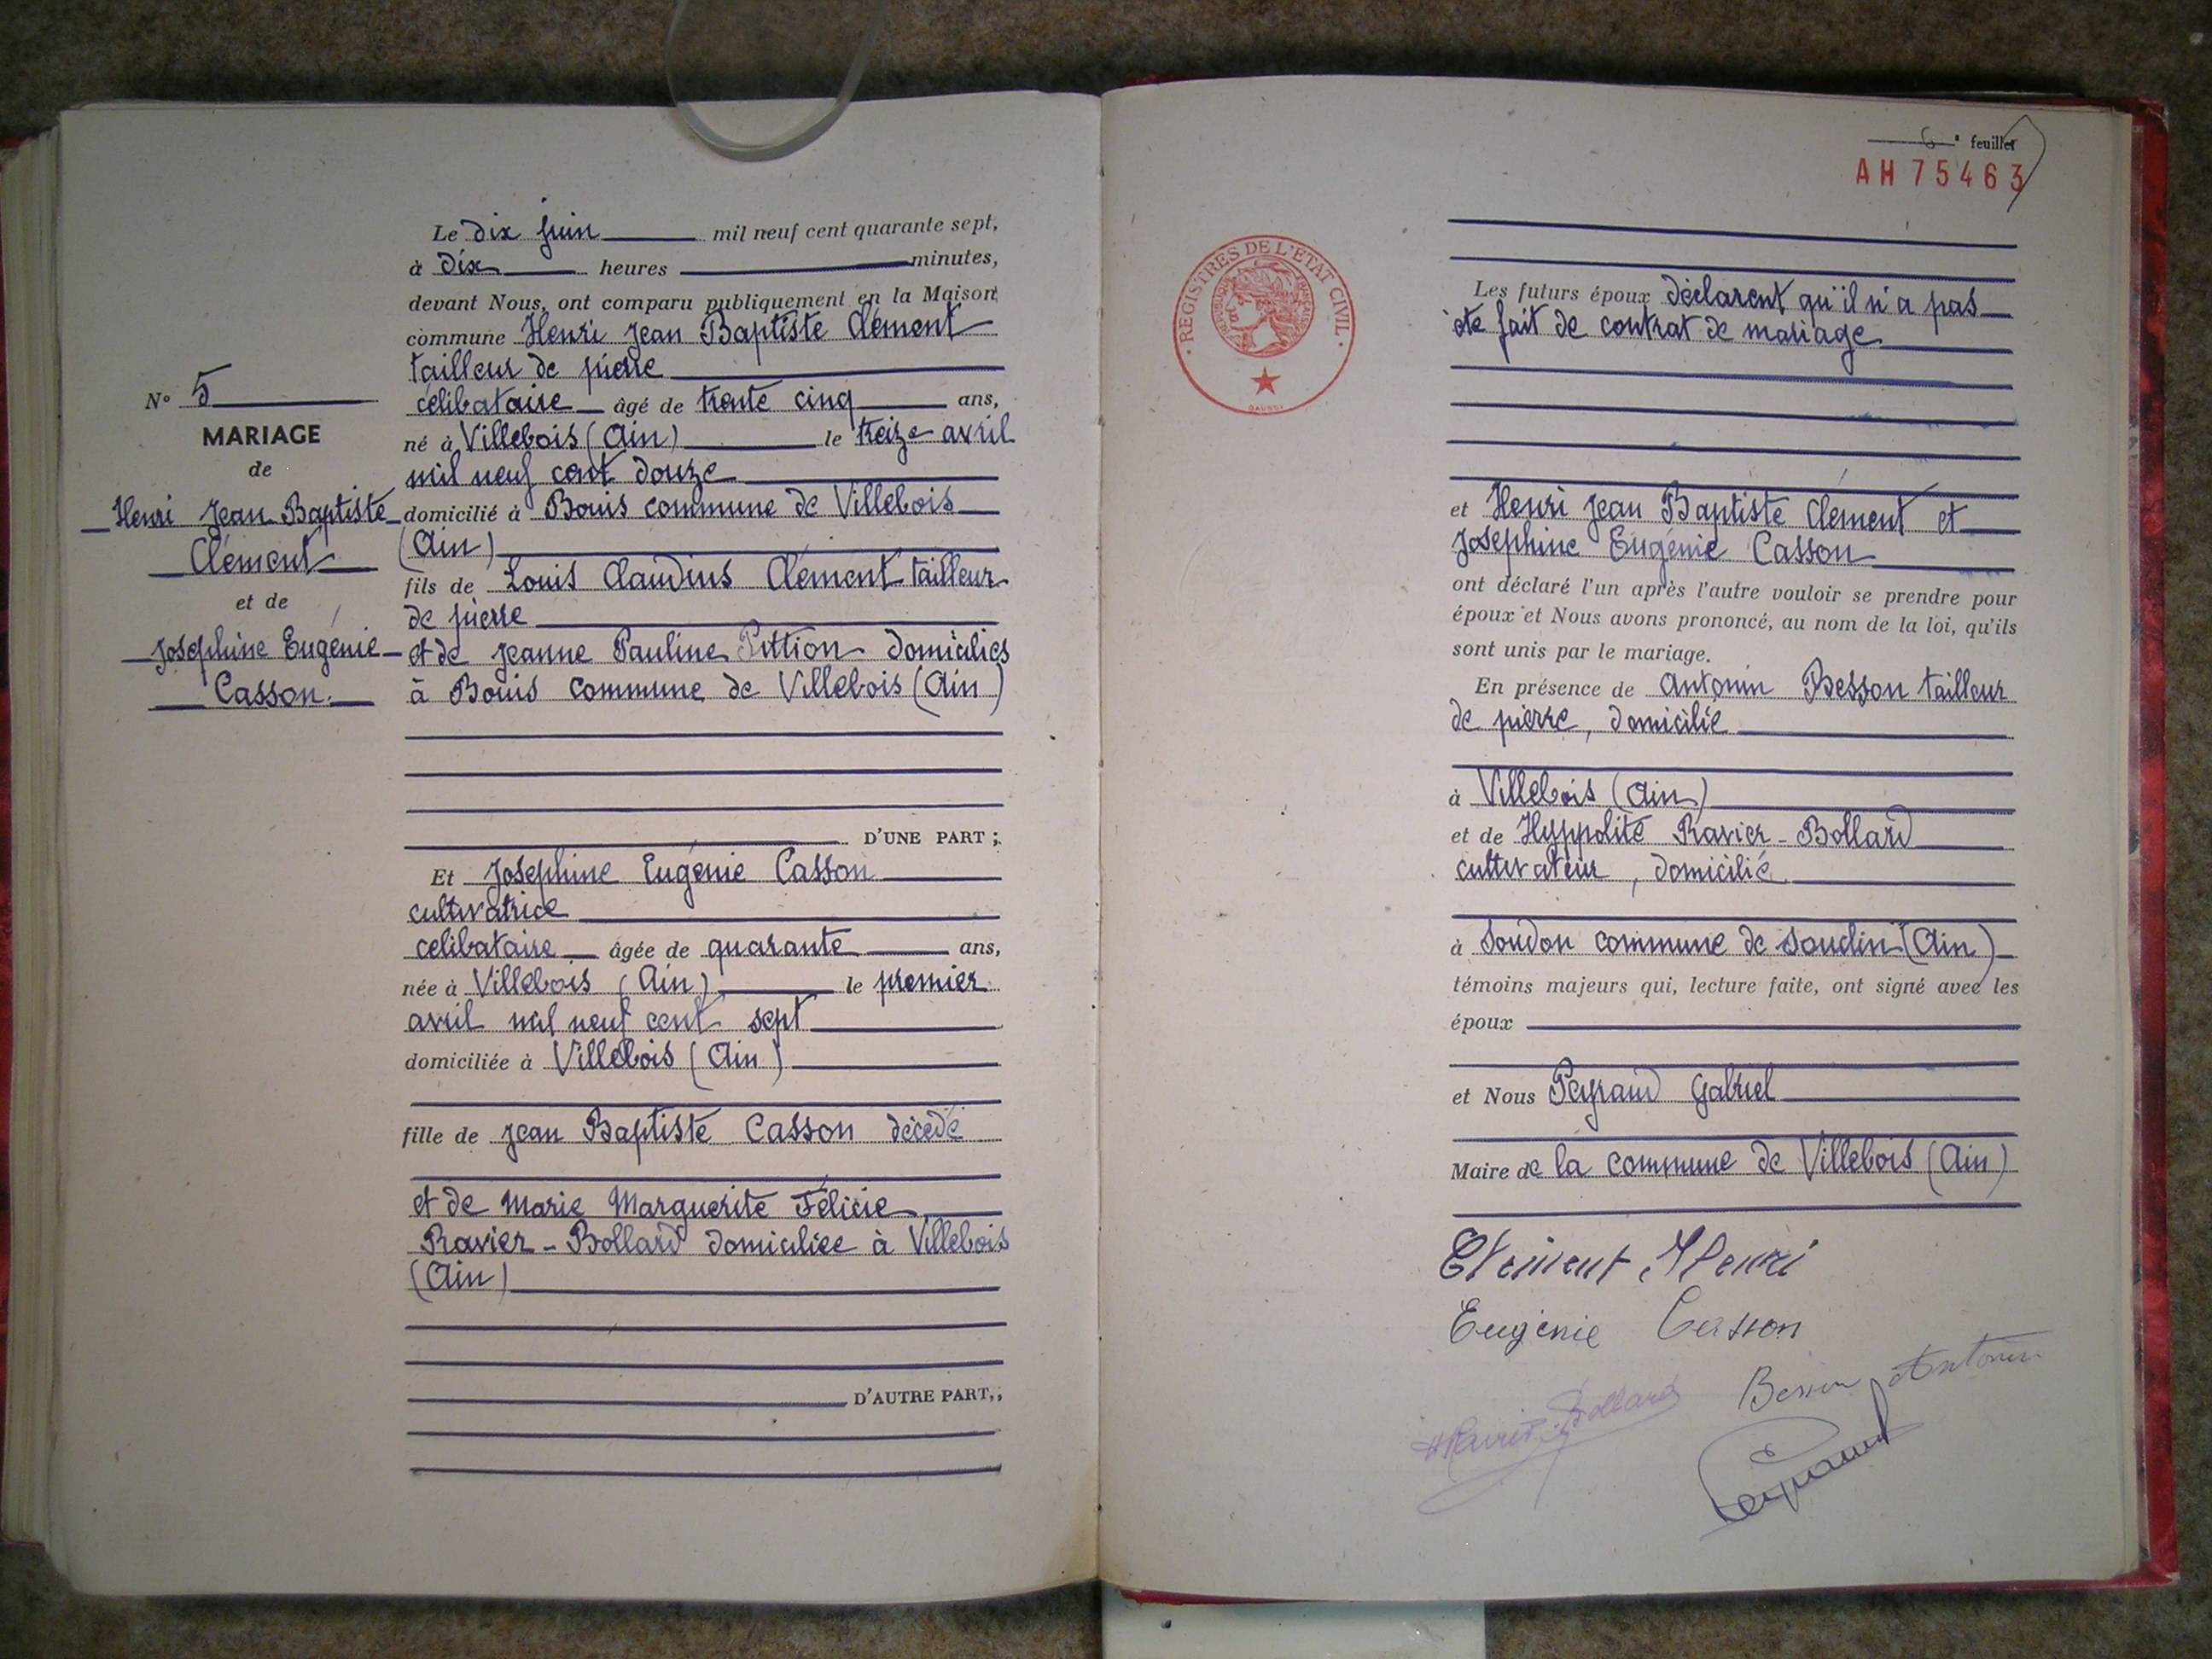 N° 5
MARIAGE
de
Henri Jean Baptiste
Clément
et de
Joséphine Eugénie
Casson.
Le dix juin mil neuf cent quarante sept,
à dix heures minutes,
devant Nous, ont comparu publiquement en la Maison
commune Henri Jean Baptiste Clément
tailleur de pierre
célibataire âgé de trente cinq ans,
né à Villebois (Ain) le treize avril
mil neuf cent douze
domicilié à Bouis commune de Villebois
(Ain)
fils de Louis Claudius Clément tailleur
de pierre
et de Jeanne Pauline Pittion domiciliés
à Bouis commune de Villebois (Ain)
D'UNE PART ;
Et Joséphine Eugénie Casson
cultivatrice
celibataire âgée de quarante ans,
née à Villebois (Ain) le premier
avril mil neuf cent sept
domiciliée à Villebois (Ain)
fille de Jean Baptiste Casson décédé
et de Marie Marguerite Félicie
Ravier-Bollard domiciliée à Villebois
(Ain)
D'AUTRE PART, ;
6 e feuillet
AH 75463
REGISTRES DE L'ÉTAT CIVIL
RÉPUBLIQUE FRANÇAISE
Les futurs époux déclarent qu'il n'a pas
été fait de contrat de mariage
et Henri Jean Baptiste Clément et
Joséphine Eugénie Casson
ont déclaré l'un après l'autre vouloir se prendre pour
époux et Nous avons prononcé, au nom de la loi, qu'ils
sont unis par le mariage.
En présence de Antonin Besson tailleur
de pierre, domicilié
à Villebois (Ain)
et de Hyppolite Ravier-Bollard
cultivateur, domicilié
à Soudon commune de Souclin (Ain)
témoins majeurs qui, lecture faite, ont signé avec les
époux
et Nous Peyraud Gabriel
Maire de la commune de Villebois (Ain)
Clément Henri
Eugénie Casson
H Ravier-Bollard
Besson Antonin
Peyraud